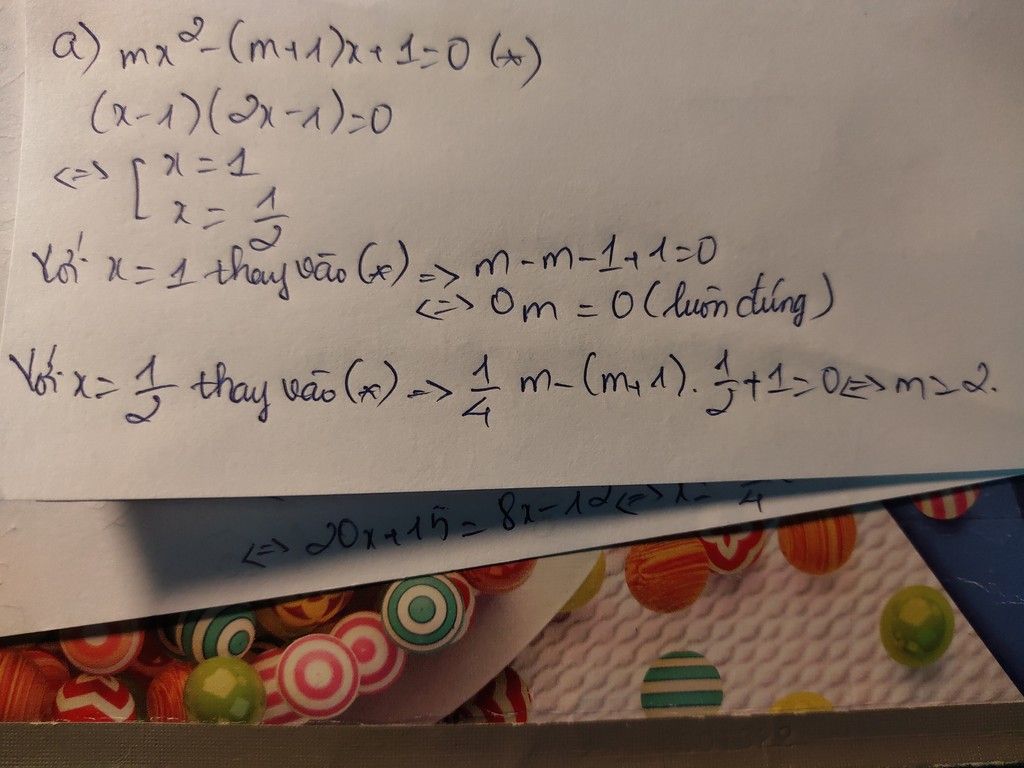 a) mx² - (m+1)x + 1 = 0 (*)
(x-1)(2x-1)=0
<=> [ x = 1
x = 1/2
Với x = 1 thay vào (*) => m - m - 1 + 1 = 0
<=> 0m = 0 (luôn đúng)
Với x = 1/2 thay vào (*) => 1/4 m - (m+1) . 1/2 + 1 = 0 <=> m = 2.
<=> 20x + 15 = 8x - 12 <=>